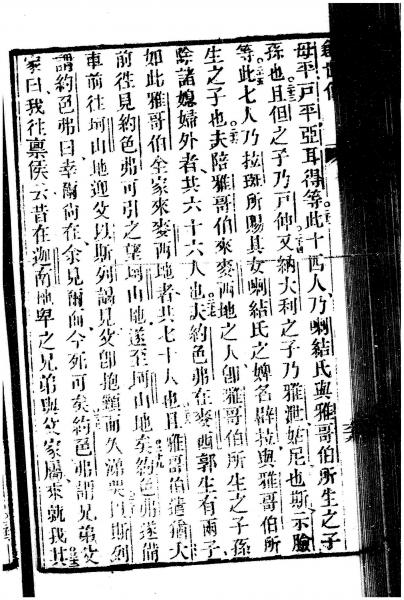 毋平戸平亞耳得等此十四人乃喇結氏與雅哥伯所生之子
孫也且但之子乃戸伸又納大利之子乃雅泄姑尼也斯示臉
等此七人乃拉班所賜其女喇結氏之婢名辟拉與雅哥伯所
生之子也夫陪雅哥伯來麥西地之人卽雅哥伯所生之子孫
除諸媳婦外者共六十六人也夫約色弗在麥西郭生有兩子
如此雅哥伯全家來麥西地者共七十人也且雅哥伯遣猶大
前徃見約色弗可引之望坷山地遂至坷山地矣約色弗遂備
車前往坷山地迎父以斯列謁見父卽抱頸而久涕哭以斯列
謂約色弗曰幸爾尙在余見爾面今死可矣約色弗謂兄弟父
家曰我往稟侯云昔在迦南地卑之兄弟與父家屬來就我其